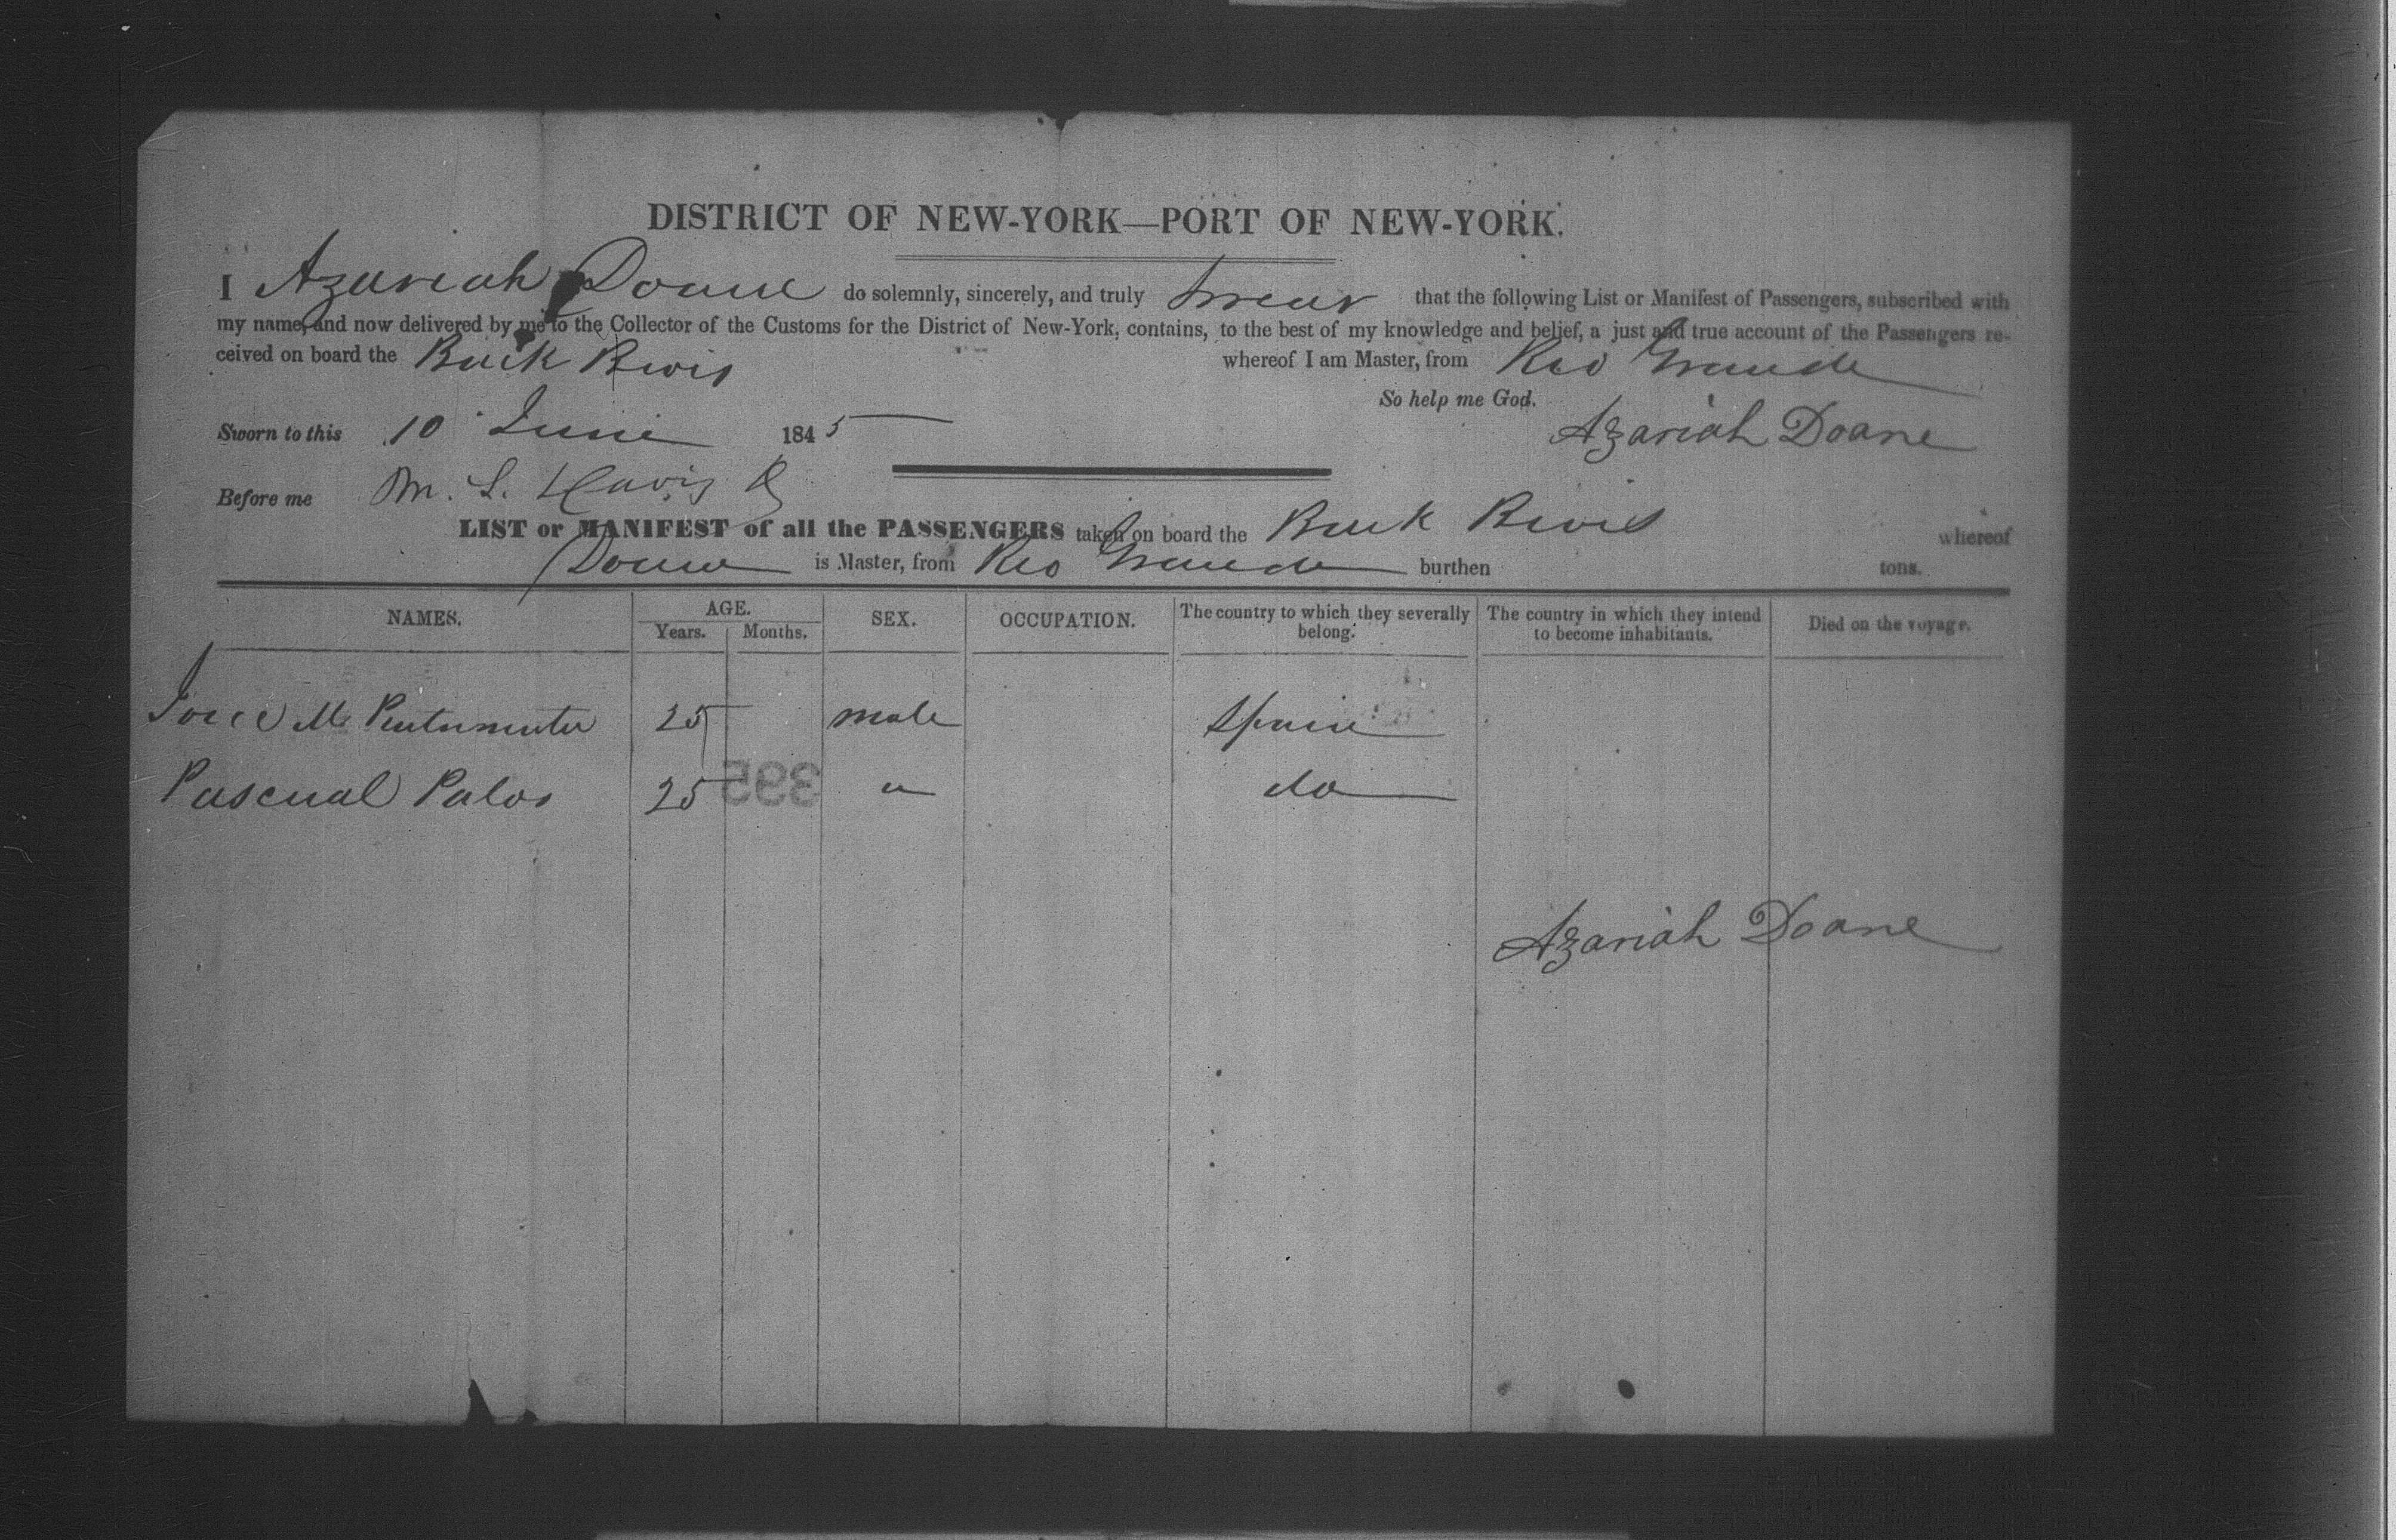 DISTRICT OF NEW-YORK—PORT OF NEW-YORK.
I Azariah Doane do solemnly, sincerely, and truly swear that the following List or Manifest of Passengers, subscribed with
my name, and now delivered by me to the Collector of the Customs for the District of New-York, contains, to the best of my knowledge and belief, a just and true account of the Passengers re-
ceived on board the whereof I am Master, from Rio Grande
So help me God.
Sworn to this 10 June 1845
Azariah Doane
Before me M. L. Davis
LIST or MANIFEST of all the PASSENGERS taken on board the whereof
Doane is Master, from Rio Grande burthen tons.
NAMES. AGE. SEX. OCCUPATION. The country to which they severally belong. The country in which they intend to become inhabitants. Died on the voyage.
Years. Months.
M 25 male Spain
Pascual Palos 25 " do
395
Azariah Doane